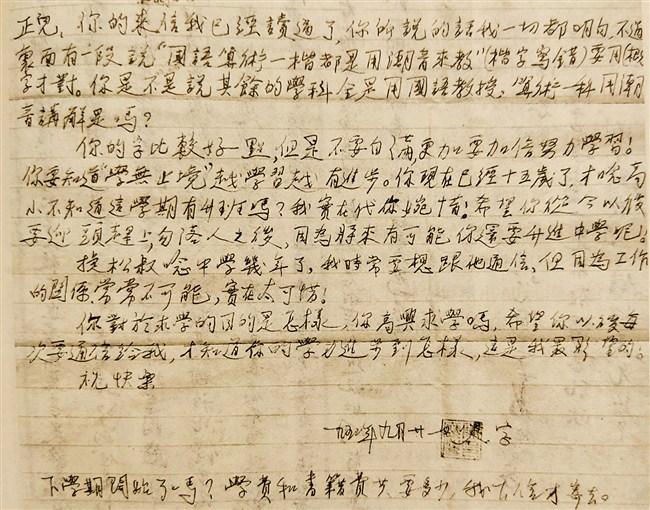 正兒，你的來信我已經讀過了，你所說的話我一切都明白，不過
裏面有一段說"國語算術一楷都是用潮音來教"(楷字寫錯)要用(概)
字才對。你是不是說其餘的學科全是用國語教授，算術一科用潮
音講解是嗎？
你的字比較好一點，但是不要自滿更加要加倍努力學習！
你要知道"學無止境"越學習越有進步。你現在已經十五歲了，才唸高
小不知道這學期有升班嗎？我實在代你惋惜！希望你從今以後
要迎頭趕上，勿落人之後，因為將來有可能你還要升進中學呢！
松叔唸中學幾年了，我時常要想跟他通信，但因為工作
的關係常常不可能，實在太可惜！
你對於求學的目的是怎樣，你高興求學嗎，希望你以後每
次要通信給我，才知道你的學力進步到怎樣，這是我最
祝快樂
一九五 年九月廿一 字
下學期開始了嗎？學費和書籍費共要多少，我下信才寄去。